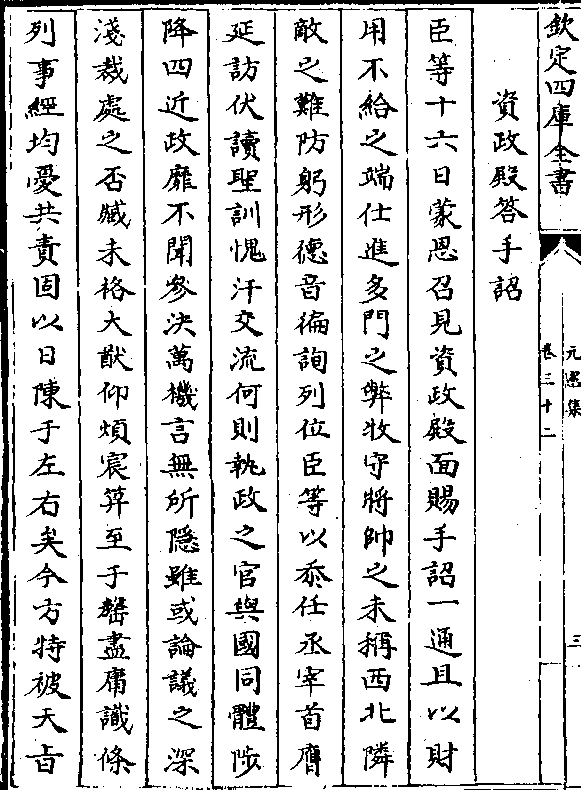 欽定四庫全書
元憲集
卷三十二
三
資政殿答手詔
臣等十六日蒙恩召見資政殿面賜手詔一通且以財
用不給之端仕進多門之弊牧守將帥之未稱西北隣
敵之難防躬形德音徧詢列位臣等以忝任丞宰首膺
延訪伏讀聖訓愧汗交流何則執政之官與國同體陟
降四近政靡不聞參決萬機言無所隱雖或論議之深
淺裁處之否臧未裕大猷仰煩宸算至于罄盡庸識條
列事經均憂共責固以日陳于左右矣今方特被天旨